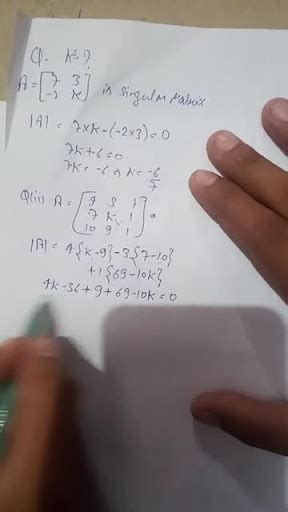 Q. K=?
A = [7 3
-2 K] is Singular Matrix
|A| = 7×K-(-2×3)=0
7K+6=0
7K = -6 ⇒ K = -6/7
Q(ii) A = [9 3 1
7 K 1
10 9 1] =
|A| = 4{K-9}-3{7-10}
+1{69-10K}
4K-36+9+69-10K=0